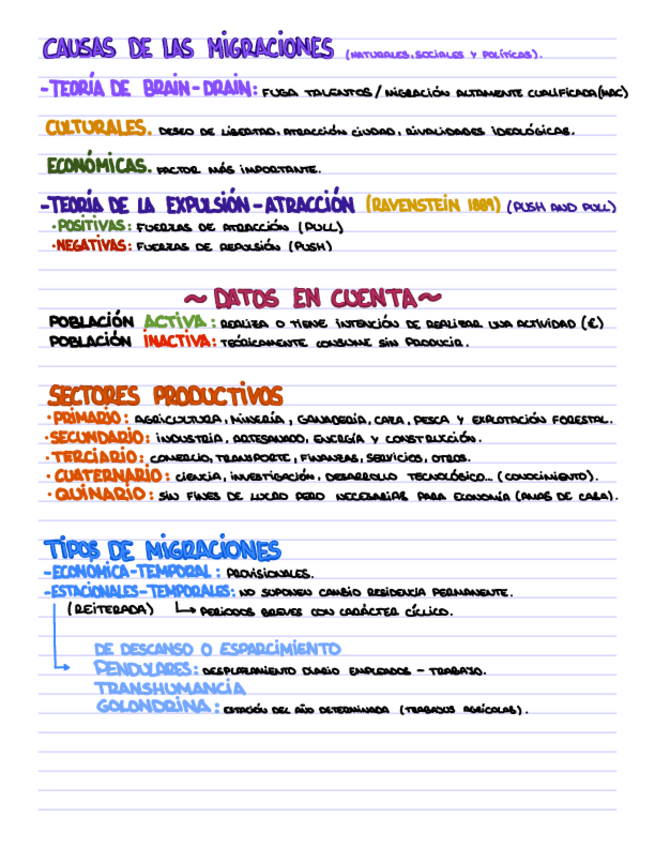 CAUSAS DE LAS MIGRACIONES (NATURALES, SOCIALES Y POLÍTICAS).
-TEORÍA DE BRAIN-DRAIN: FUGA TALENTOS / MIGRACIÓN ALTAMENTE CUALIFICADA (MAC)
CULTURALES. DESEO DE LIBERTAD, ATRACCIÓN CIUDAD, RIVALIDADES IDEOLÓGICAS.
ECONÓMICAS. FACTOR MÁS IMPORTANTE.
-TEORÍA DE LA EXPULSIÓN-ATRACCIÓN (RAVENSTEIN 1889) (PUSH AND PULL)
·POSITIVAS: FUERZAS DE ATRACCIÓN (PULL)
·NEGATIVAS: FUERZAS DE REPULSIÓN (PUSH)
~ DATOS EN CUENTA ~
POBLACIÓN ACTIVA: REALIZA O TIENE INTENCIÓN DE REALIZAR UNA ACTIVIDAD (€)
POBLACIÓN INACTIVA: TEÓRICAMENTE CONSUME SIN PRODUCIR.
SECTORES PRODUCTIVOS
·PRIMARIO: AGRICULTURA, MINERÍA, GANADERÍA, CAZA, PESCA Y EXPLOTACIÓN FORESTAL.
·SECUNDARIO: INDUSTRIA, ARTESANADO, ENERGÍA Y CONSTRUCCIÓN.
·TERCIARIO: COMERCIO, TRANSPORTE, FINANZAS, SERVICIOS, OTROS.
·CUATERNARIO: CIENCIA, INVESTIGACIÓN, DESARROLLO TECNOLÓGICO... (CONOCIMIENTO).
·QUINARIO: SIN FINES DE LUCRO PERO NECESARIAS PARA ECONOMÍA (AMAS DE CASA).
TIPOS DE MIGRACIONES
-ECONÓMICA-TEMPORAL: PROVISIONALES.
-ESTACIONALES-TEMPORALES: NO SUPONEN CAMBIO RESIDENCIA PERMANENTE.
(REITERADA) ↳ PERIODOS BREVES CON CARÁCTER CÍCLICO.
DE DESCANSO O ESPARCIMIENTO
PENDULARES: DESPLAZAMIENTO DIARIO EMPLEADOS - TRABAJO.
TRANSHUMANCIA
GOLONDRINA: ESTACIÓN DEL AÑO DETERMINADA (TRABAJOS AGRÍCOLAS).